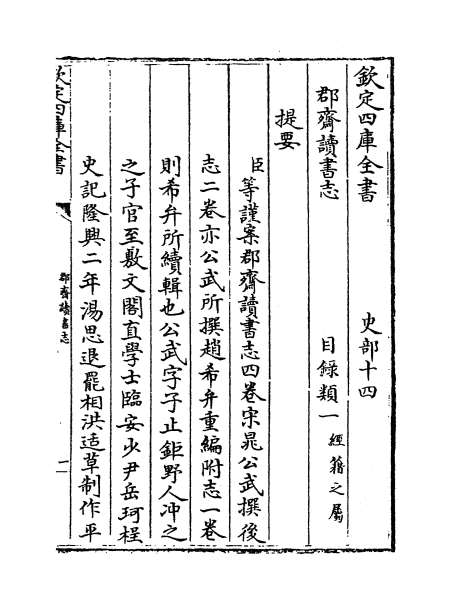 欽定四庫全書　史部十四
郡齋讀書志　目録類一經籍之屬
提要
臣等謹案郡齋讀書志四卷宋晁公武撰後
志二卷亦公武所撰趙希弁重編附志一卷
則希弁所續輯也公武字子止鉅野人冲之
之子官至敷文閣直學士臨安少尹岳珂桯
史記隆興二年湯思退罷相洪适草制作平
欽定四庫全書
郡齋讀書志
一